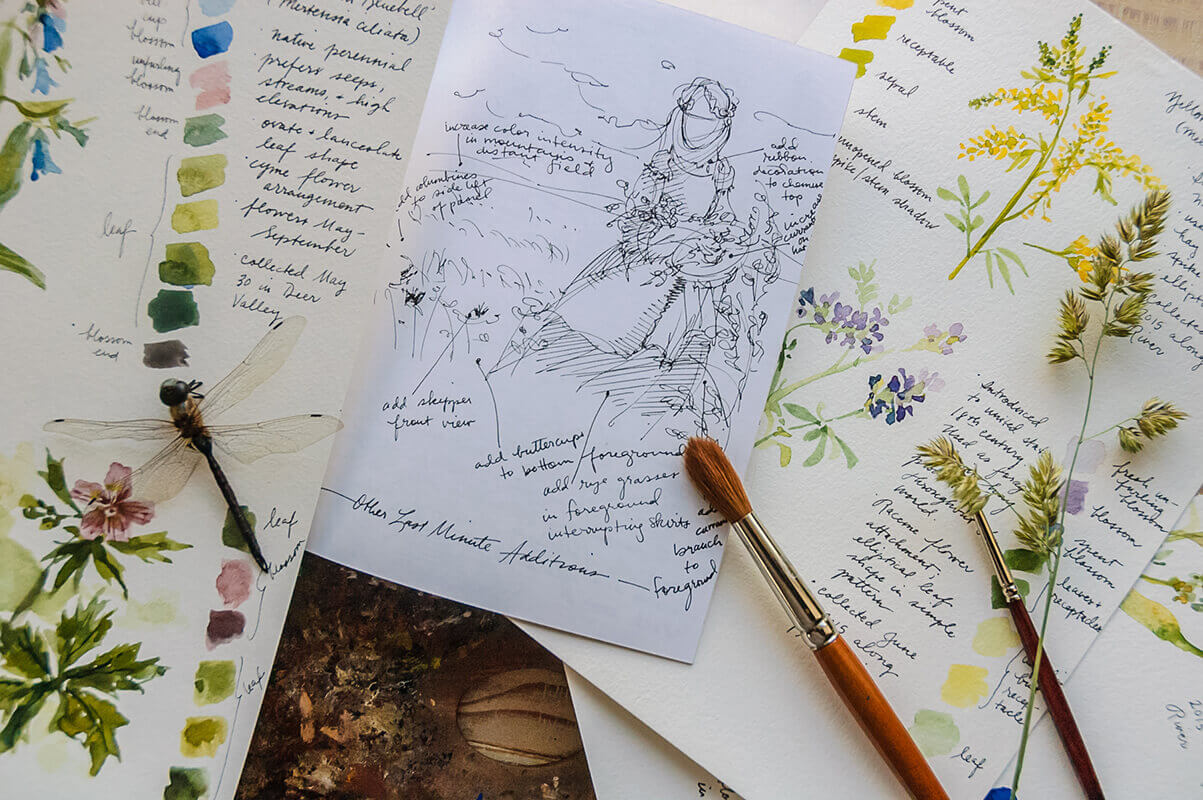 Bluebell'
(Mertensia Ciliata)
cup
blossom
unfurling
blossom
blossom
end
leaf
blossom
end
• native perennial
prefers seeps,
streams, & high
elevations
ovate & lanceolate
leaf shape
cyme flower
arrangement
flowers May-
September
• collected May
30 in Deer
Valley
leaf
blossom
leaf
increase color intensity
in mountains &
distant field
add columbines
to side left
of panel
add
ribbon
decoration
to chemise
top
on
hat
add skipper
front view
add buttercups
to bottom/foreground
add rye grasses
in foreground
interrupting skirts
add
currant
branch
to
foreground
Other Last Minute Additions
spent
blossom
receptable
sepal
stem
unopened blossom
spike/stem shadow
collected
2015
River
• Introduced
to united states
18th century
Used as
• Raceme flower
attachment,
elliptical leaf
shape in simple
pattern
• collected June
2015 along
fresh unfurling
blossom
spent
blossom
leaves &
receptacles
leaf
2015
River